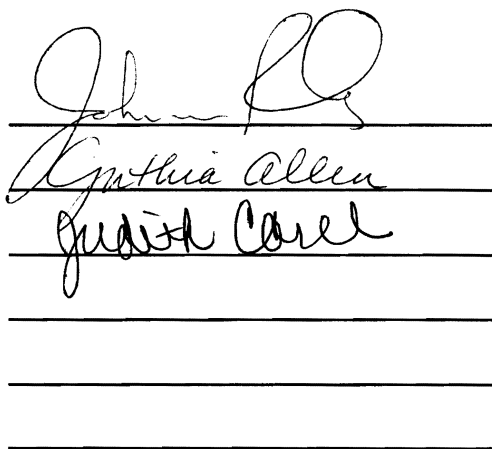 John
Cynthia Allen
Judith Carel